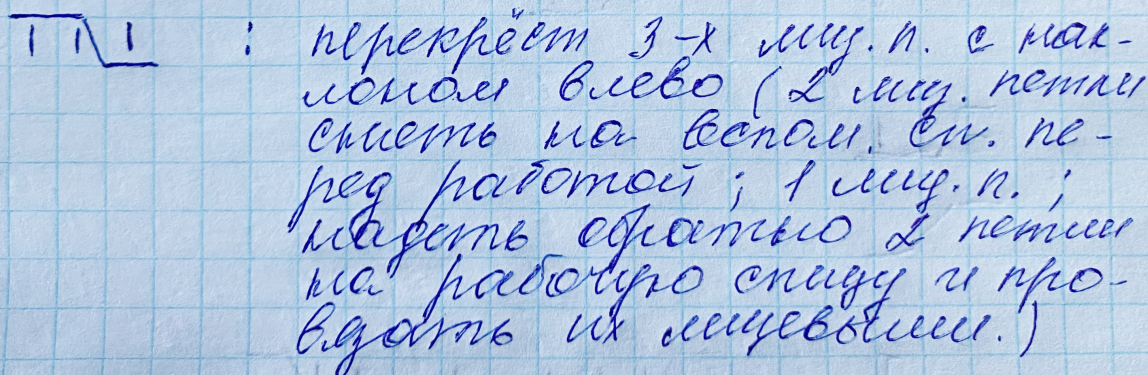 : перекрёст 3-х лиц. п. с нак-
лоном влево (2 лиц. петли
снять на вспом. сп. пе-
ред работой; 1 лиц. п.;
надеть обратно 2 петли
на рабочую спицу и про-
вязать их лицевыми.)